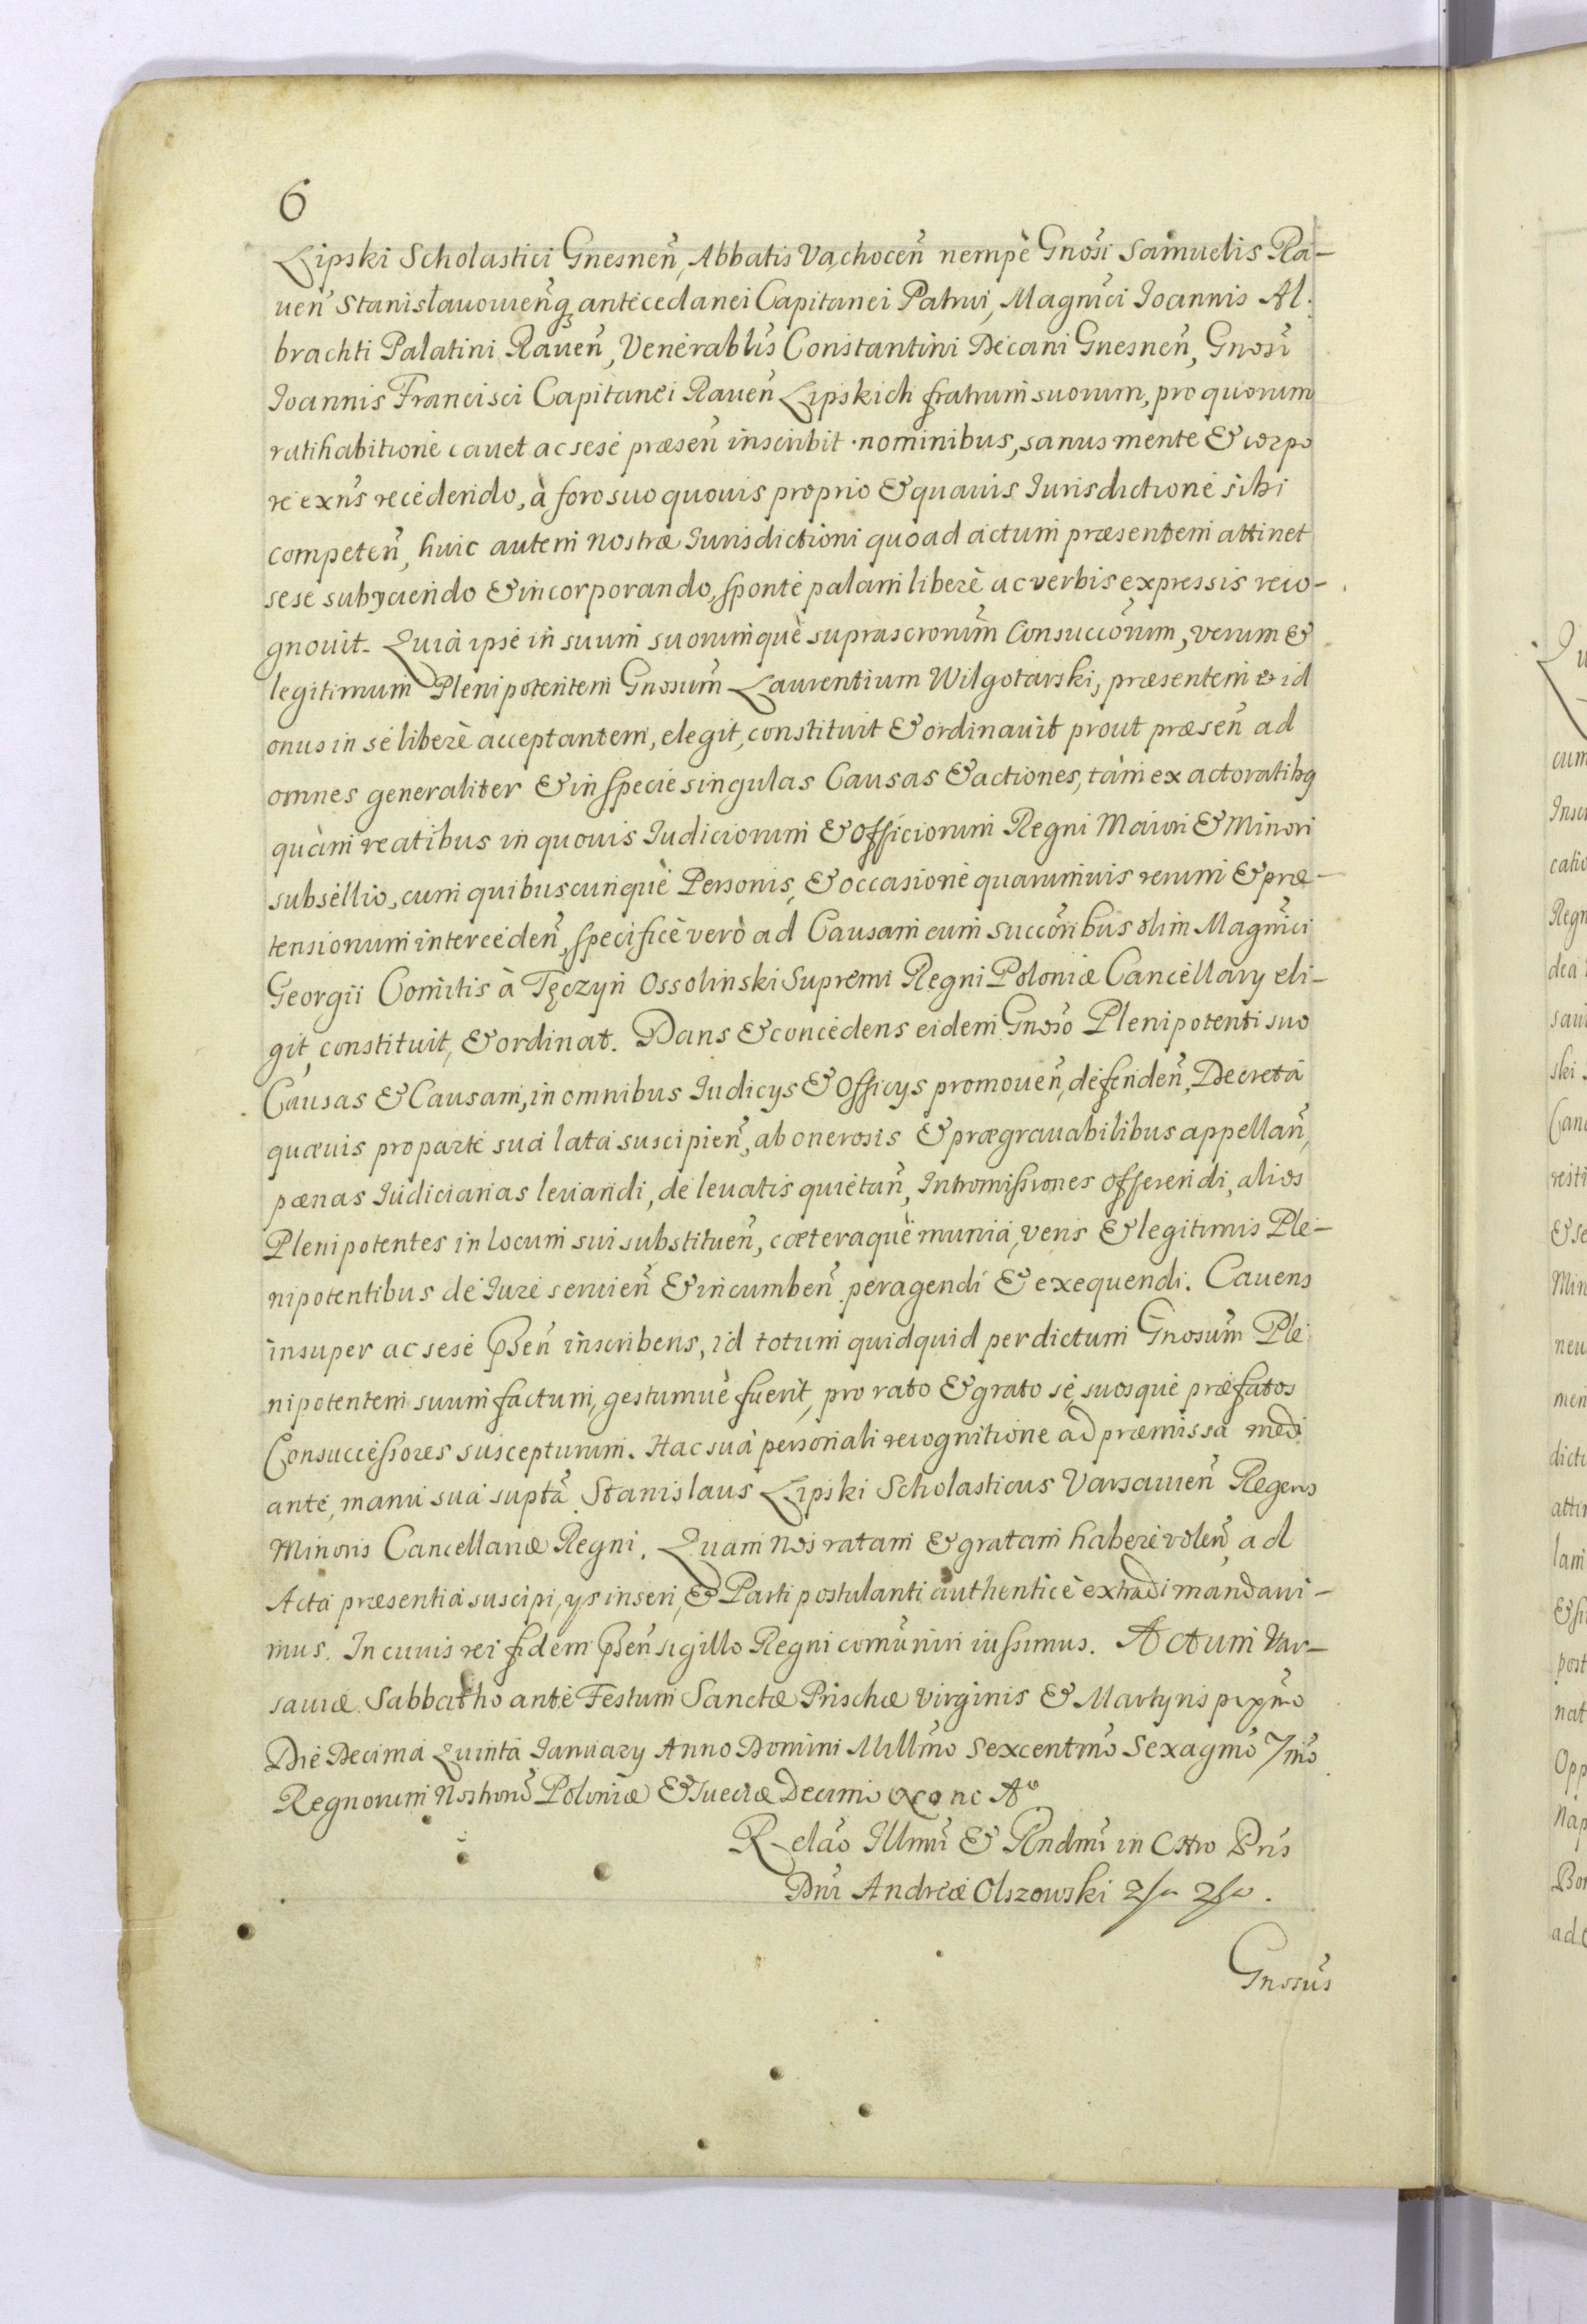 6
Lipski Scholastici Gnesnen̄, Abbatis Vachocen̄ nempè Gnosi Samuelis Ra-
uen̄ Stanisłauouien̄q₃ antecedanei Capitanei Patrui, Magnici Joannis Al:
brachti Palatini Rauen̄, Venerablis Constantini Decani Gnesnen̄, Gnosi
Joannis Francisci Capitanei Rauen̄ Lipskich fratrum suorum, pro quorum
ratihabitione cauet ac sese præsen̄ inscribit nominibus, sanus mente & corpo
re exn̄s recedendo, à foro suo quouis proprio & quauis Iurisdictione sibi
competen̄, huic autem nostræ Iurisdictioni quo ad actum præsentem attinet
sese subyciendo & incorporando, sponte palam liberè ac verbis expressis reco-
gnouit. Quia ipse in suum suorumquè suprascrorum̄ Consuccorum̄, verum &
legitimum Plenipotentem Gnosum̄ Laurentium Wilgotarski, præsentem & id
onus in se liberè acceptantem, elegit, constituit & ordinauit prout præsen̄ ad
omnes generaliter & in specie singulas Causas & actiones, tàm ex actoratibq
quàm reatibus in quouis Iudiciorum & Officiorum Regni Maiori & Minori
subsellio, cum quibuscunquè Personis, & occasione quarumuis rerum & præ-
tensionum interceden̄, specificè verò ad Causam cum succoribus olim Magnici
Georgii Comitis à Tęczyn Ossolinski Supremi Regni Poloniæ Cancellary eli-
git, constituit, & ordinat. Dans & concedens eidem Gnoso Plenipotenti suo
Causas & Causam, in omnibus Iudicys & Officys promouen̄, defenden̄, Decreta
quæuis pro parte sua lata suscipien̄, ab onerosis & prægrauabilibus appellan̄,
pænas Iudiciarias leuandi, de leuatis quietan̄, Intromissiones offerendi, alios
Plenipotentes in locum sui substituen̄, cæteraquè munia, veris & legitimis Ple-
nipotentibus de Iure seruien̄ & incumben̄ peragendi & exequendi. Cauens
insuper ac sese p̄sen̄ inscribens, id totum quidquid per dictum Gnosum̄ Ple
nipotentem suum factum, gestumuè fuerit, pro rato & grato se, suosque præfatos
Consuccessores suscepturum. Hac sua personali recognitione ad præmissa medi
ante, manu sua suptā. Stanislaus Lipski Scholasticus Varsauien̄ Regens
Minoris Cancellariæ Regni. Quam Nos ratam & gratam habere volen̄, ad
Acta præsentia suscipi, ys inseri, & Parti postulanti authenticè extradi mandaui-
mus. In cuius rei fidem p̄sen̄ sigillo Regni comuniri iussimus. Actum Var-
sauiæ Sabbatho ante Festum Sanctæ Prischæ Virginis & Martyris pxymo
Die Decima Quinta Ianuary Anno Domini Millmo Sexcentmo Sexagmo 7mo
Regnorum Nostroru Poloniæ & Sueciæ Decimo Nono Aº
Relāo Illmi & Rndmi in Chro Pris
Dni Andreæ Olszowski
Gnosus